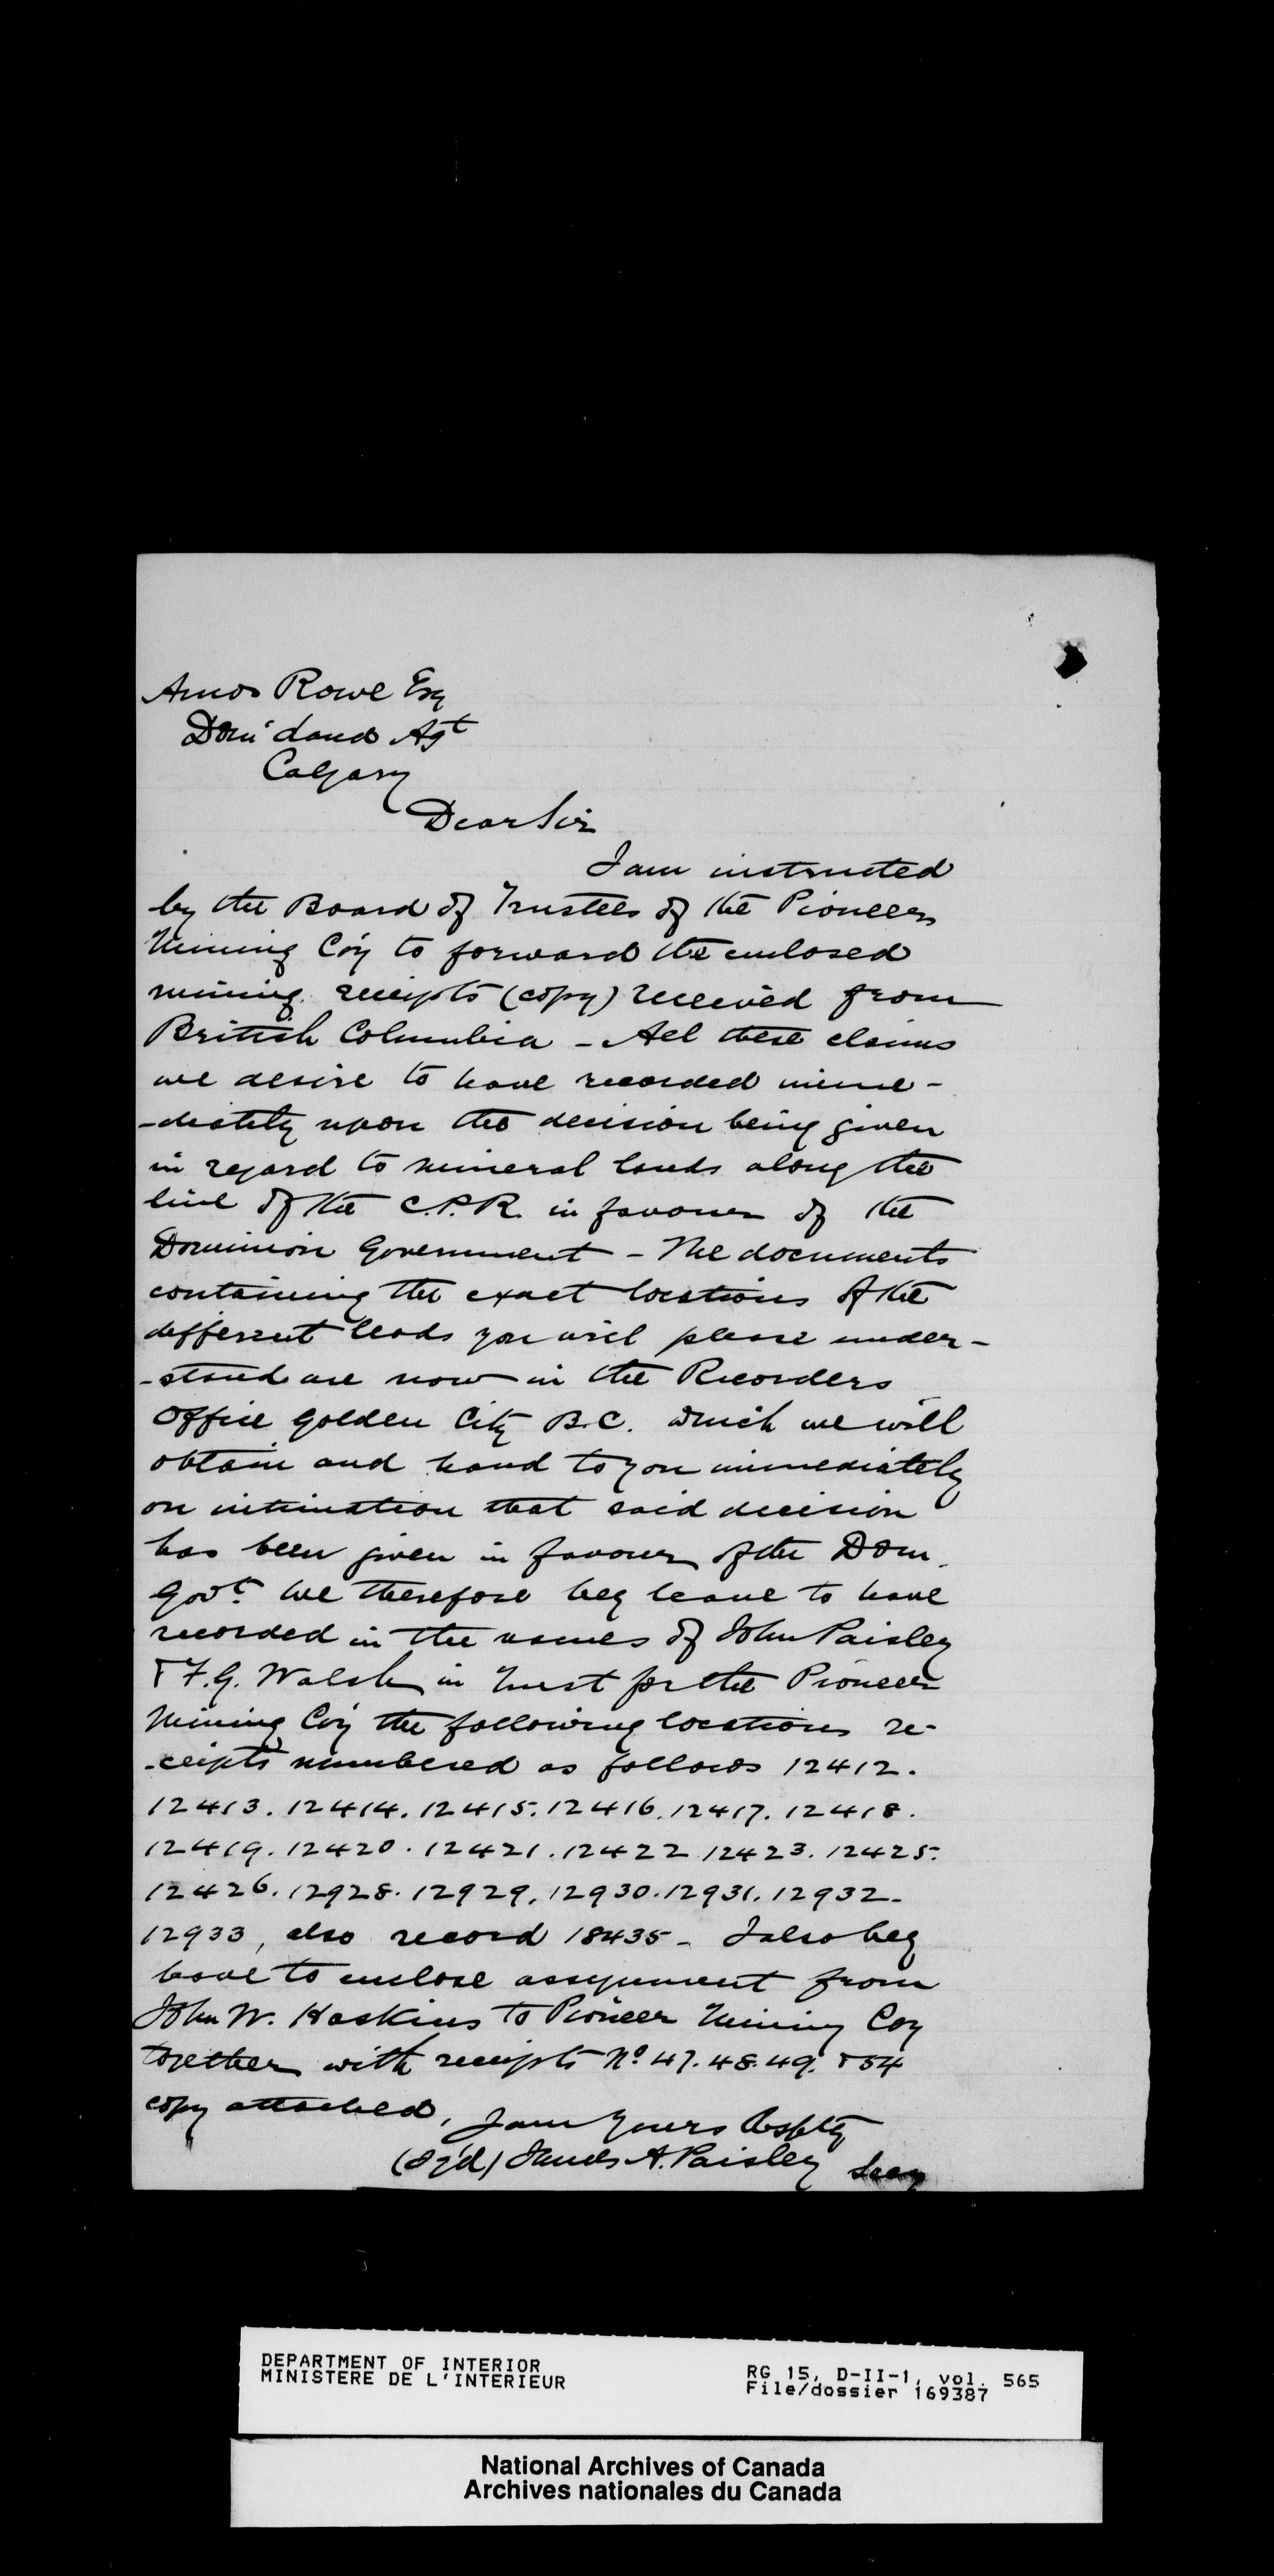 Amos Rowe Esq
Dom' Lands Agt
Calgary
Dear Sir
I am instructed
by the Board of Trustees of the Pioneer
Mining Co'y to forward the enclosed
mining receipts (copy) received from
British Columbia - All these claims
we desire to have recorded imme-
-diately upon the decision being given
in regard to mineral lands along the
line of the C.P.R. in favour of the
Dominion Government - The documents
containing the exact locations of the
different leads you will please under-
-stand are now in the Recorders
Office Golden City B.C. which we will
obtain and hand to you immediately
on intimation that said decision
has been given in favour of the Dom.
Govt. We therefore beg leave to have
recorded in the names of John Paisley
& F.G. Walsh in trust for the Pioneer
Mining Co'y the following locations re-
-ceipts numbered as follows 12412.
12413. 12414. 12415. 12416. 12417. 12418.
12419. 12420. 12421. 12422 12423. 12425.
12426. 12928. 12929. 12930. 12931. 12932.
12933, also record 18435 - I also beg
leave to enclose assignment from
John W. Haskins to Pioneer Mining Coy
together with receipts No. 47. 48. 49. & 54
copy attached, I am Yours Respfty
(Sg'd) James A. Paisley Secy
DEPARTMENT OF INTERIOR
MINISTERE DE L'INTERIEUR
RG 15, D-II-1, vol. 565
File/dossier 169387
National Archives of Canada
Archives nationales du Canada